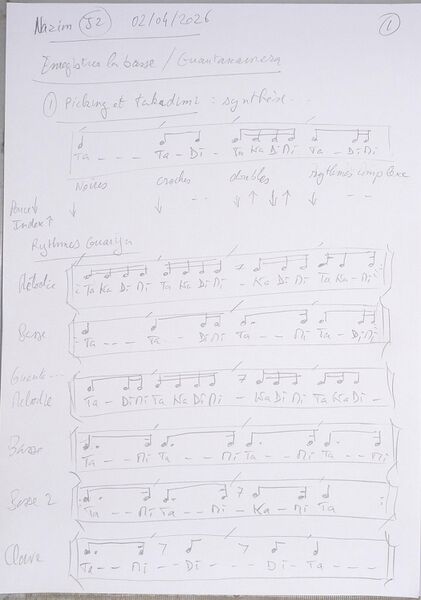 Nazim J2 02/04/2026 1
Enregistrer la basse / Guantanamera
1 Picking et takadimi : synthèse...
Ta - - - Ta - Di - Ta Ka Di Mi Ta - Di Mi
Noires croches doubles rythmes complexe
Pouce ↓ ↓ ↓ - - ↓ ↑ ↓ ↑ ↓ - -
Index ↑
Rythmes Guajira
Mélodie Ta Ka Di Mi Ta Ka Di Mi - Ka Di Mi Ta Ka - Mi
Basse Ta - - - Ta - Di Mi Ta - - Mi Ta - Di Mi
Guanta...
Mélodie Ta - Di Mi Ta Ka Di Mi - Ka Di Mi Ta Ka Di -
Basse Ta - - Mi Ta - - Mi Ta - - Mi Ta - - Mi
Basse 2 Ta - - Mi Ta - - Mi - Ka - Mi Ta
Clave Ta - - Mi - - Di - - - Di - Ta - - -